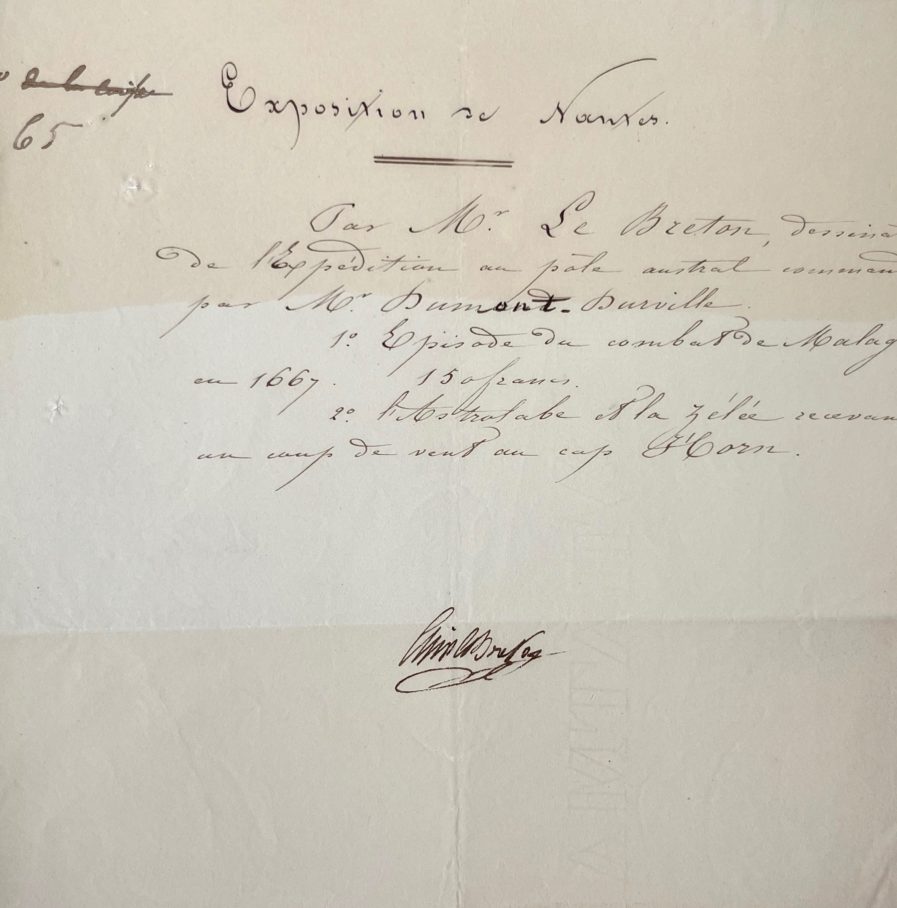 de la caisse
65
Exposition de Nantes.
Par Mr. Le Breton, dessina
de l'Expédition au pôle austral command
par Mr. Dumont-Durville.
1º. Episode du combat de Malag
en 1667. 150 francs.
2º. l'Astrolabe et la Zélée recevan
un coup de vent au cap H'Corn.
LeBreton